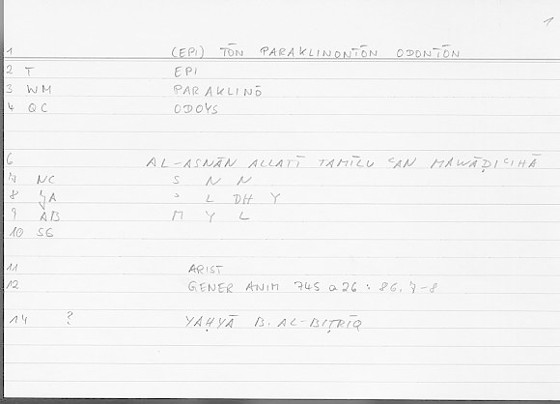 1
1 (EPI) TŌN PARAKLINONTŌN ODONTŌN
2 T EPI
3 WM PARAKLINŌ
4 QC ODOYS
6 AL-ASNĀN ALLATĪ TAMĪLU ʿAN MAWĀḌIʿIHĀ
7 NC S N N
8 ʾ L DH Y
9 AB M Y L
10 SG
11 ARIST
12 GENER ANIM 745 a 26 : 86.7-8
14 ? YAḤYĀ B. AL-BIṬRĪQ